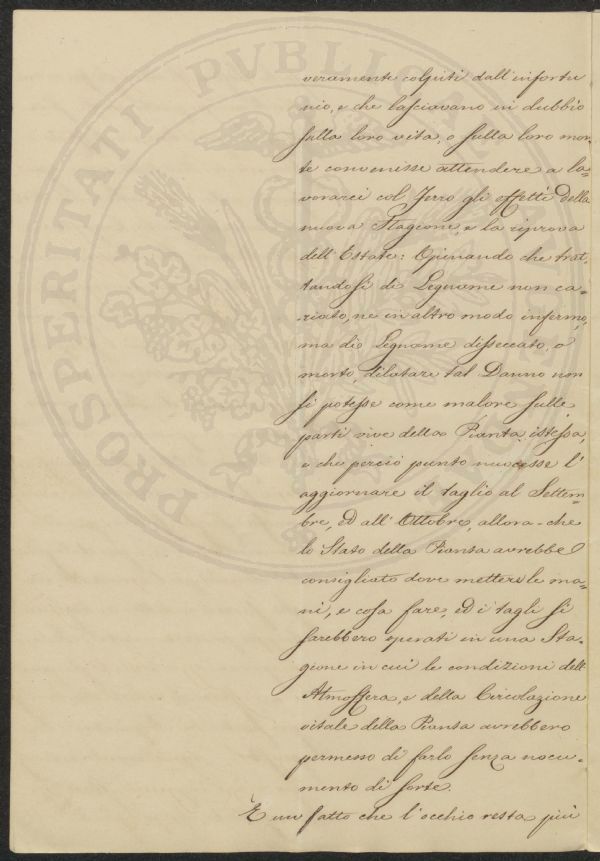 veramente colpiti dall'infortu
nio, e che lasciavano in dubbio
sulla loro vita, o sulla loro mor
te convenisse attendere a la=
vorarci col Ferro gli effetti della
nuova Stagione, e la riprova
dell'Estate: Opinando che trat=
tandosi di Legname non ca=
riato, ne in altro modo infermo,
ma di Legname disseccato, o
morto, dilatare tal Danno non
si potesse come malore sulle
parti vive della Pianta istessa,
e che perciò punto nuocesse l'
aggiornare il taglio al Settem=
bre, ed all'Ottobre, allora-che
lo Stato della Pianta avrebbe
consigliato dove mettere le ma=
ni, e cosa fare, ed i tagli si
sarebbero operati in una Sta=
gione in cui le condizioni dell'
Atmosfera, e della Circolazione
vitale della Pianta avrebbero
permesso di farlo senza nocu=
mento di sorte.
È un fatto che l'occhio resta più
PROSPERITATI PVBLICAE